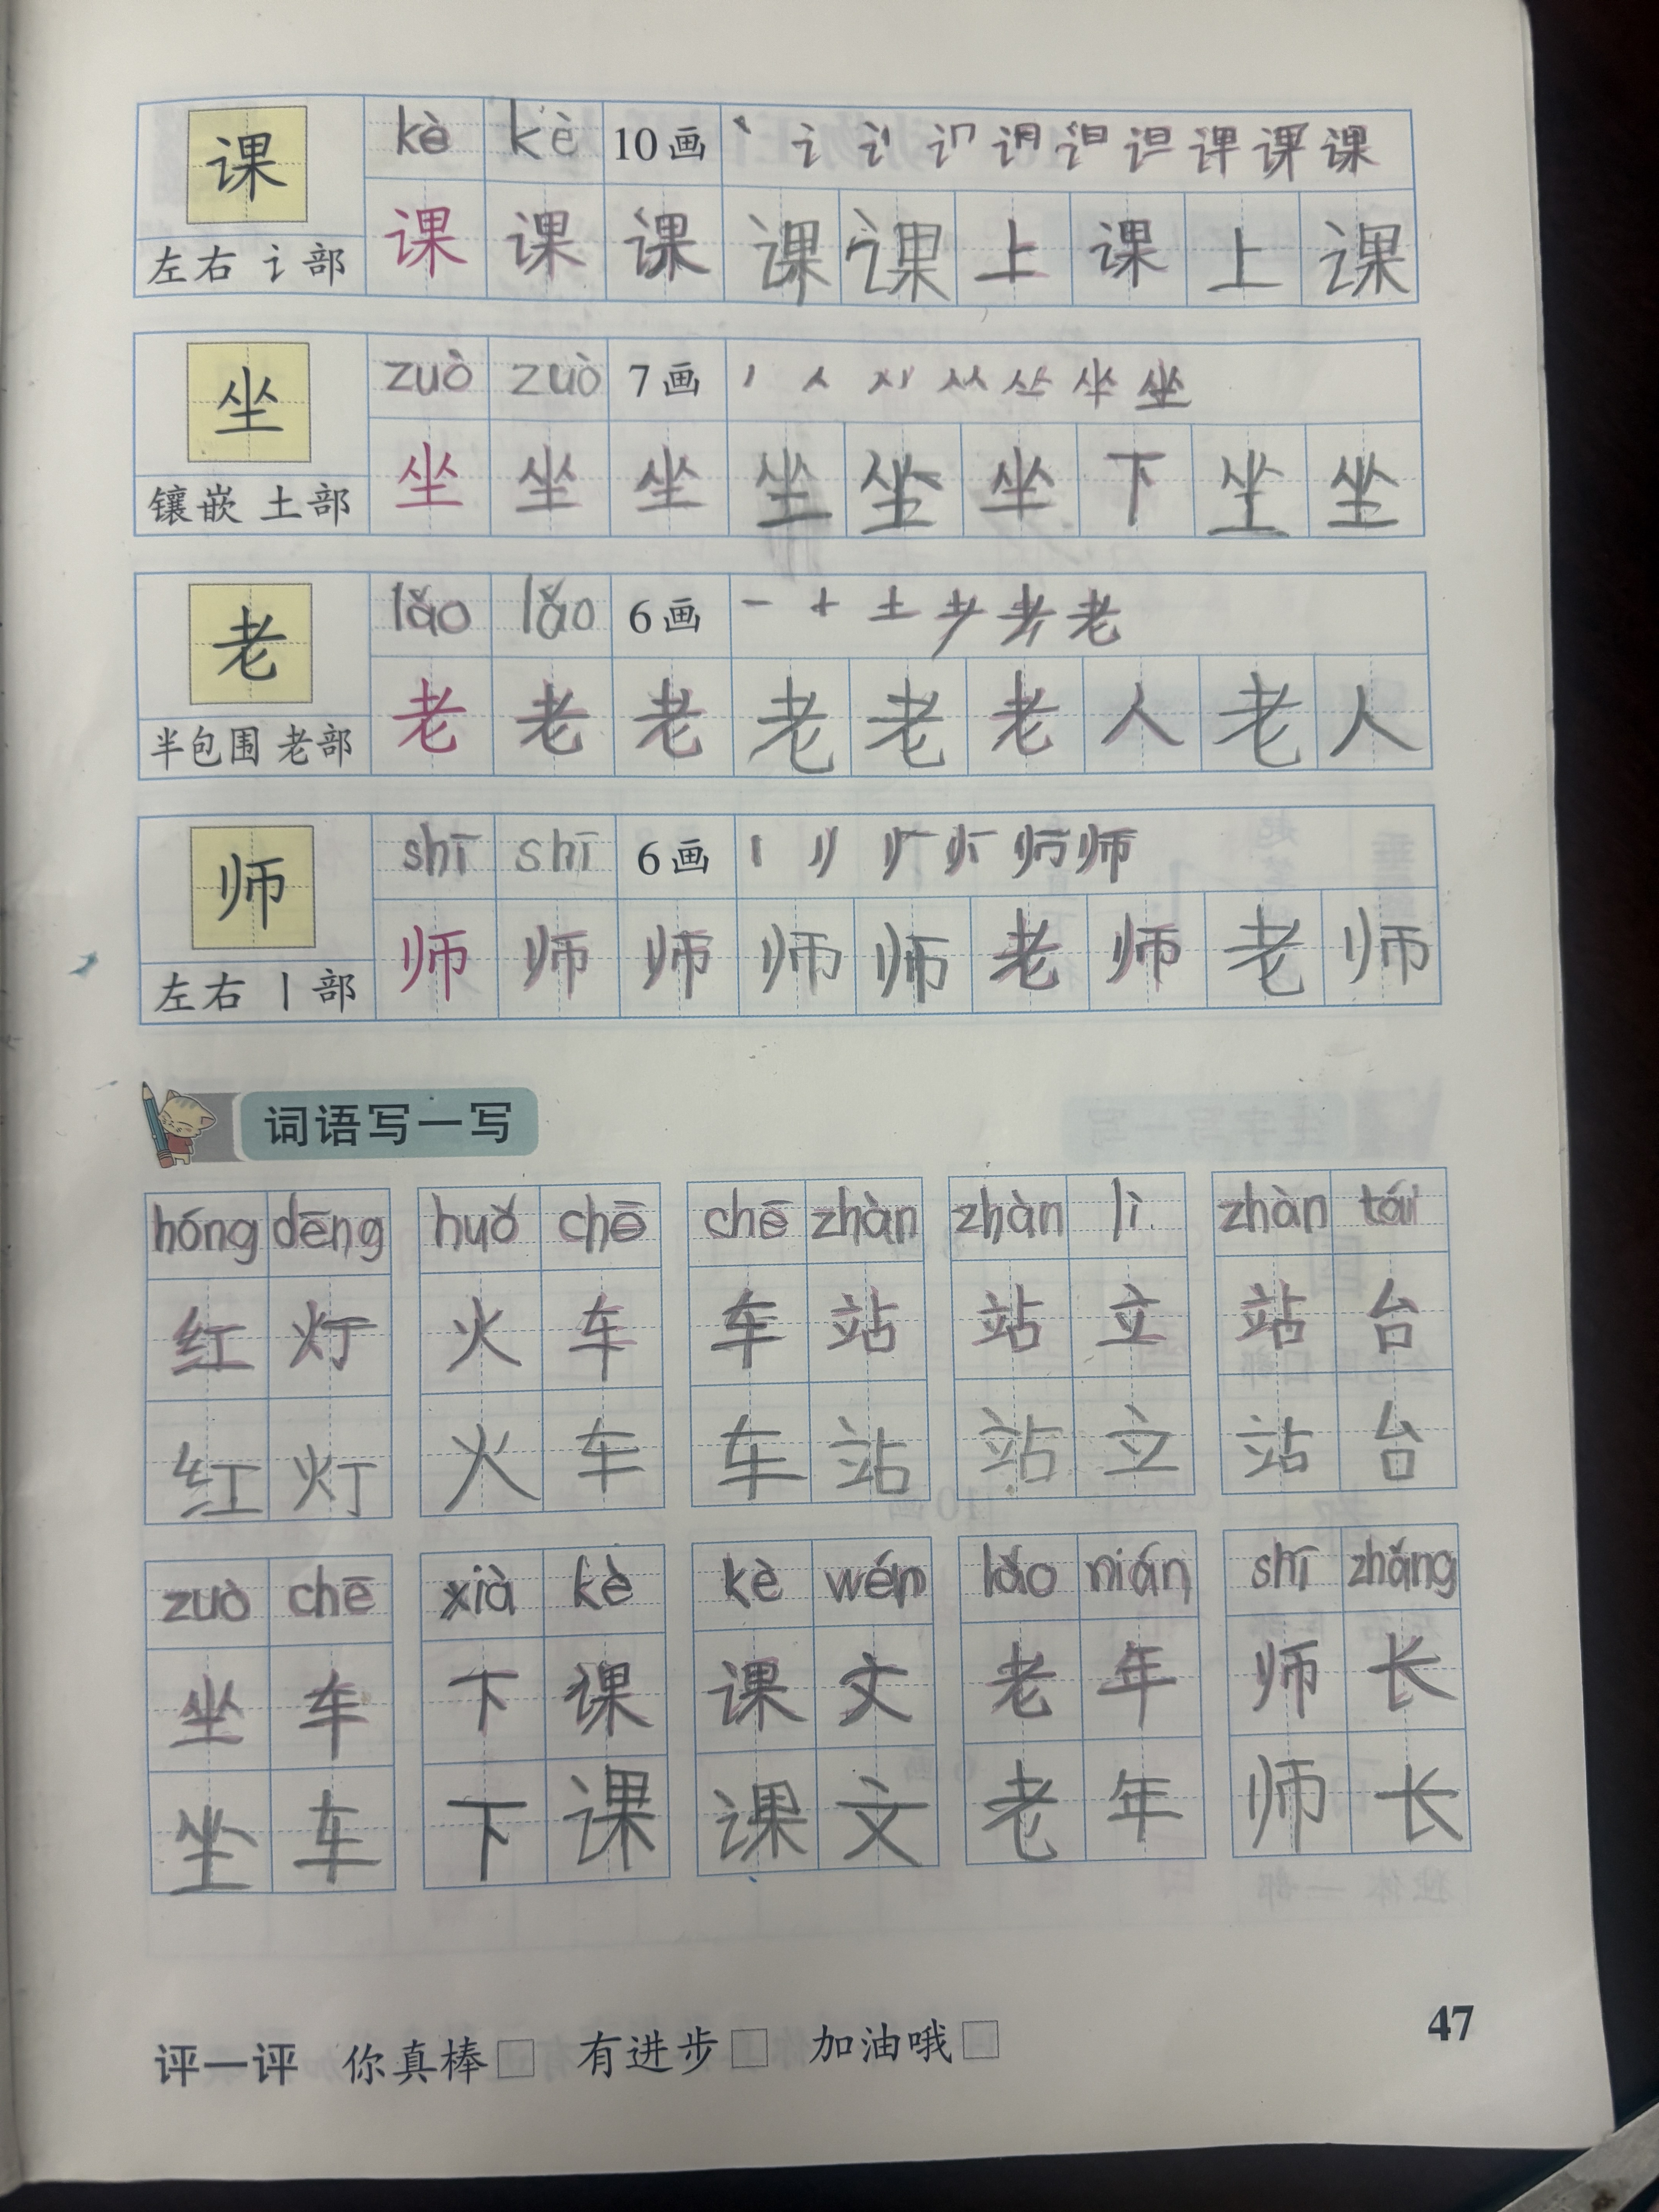 课 kè kè 10画 丶 讠 课
左右 讠部 课 课 课 课 课 上 课 上 课
坐 zuò zuò 7画 丿 人 坐
镶嵌 土部 坐 坐 坐 坐 坐 坐 下 坐 坐
老 lǎo lǎo 6画 一 十 土 耂 老
半包围 老部 老 老 老 老 老 老 人 老 人
师 shī shī 6画 丨 师
左右 丨部 师 师 师 师 师 老 师 老 师
词语写一写
hóng dēng huǒ chē chē zhàn zhàn lì zhàn tái
红 灯 火 车 车 站 站 立 站 台
红 灯 火 车 车 站 站 立 站 台
zuò chē xià kè kè wén lǎo nián shī zhǎng
坐 车 下 课 课 文 老 年 师 长
坐 车 下 课 课 文 老 年 师 长
评一评 你真棒□ 有进步□ 加油哦□
47